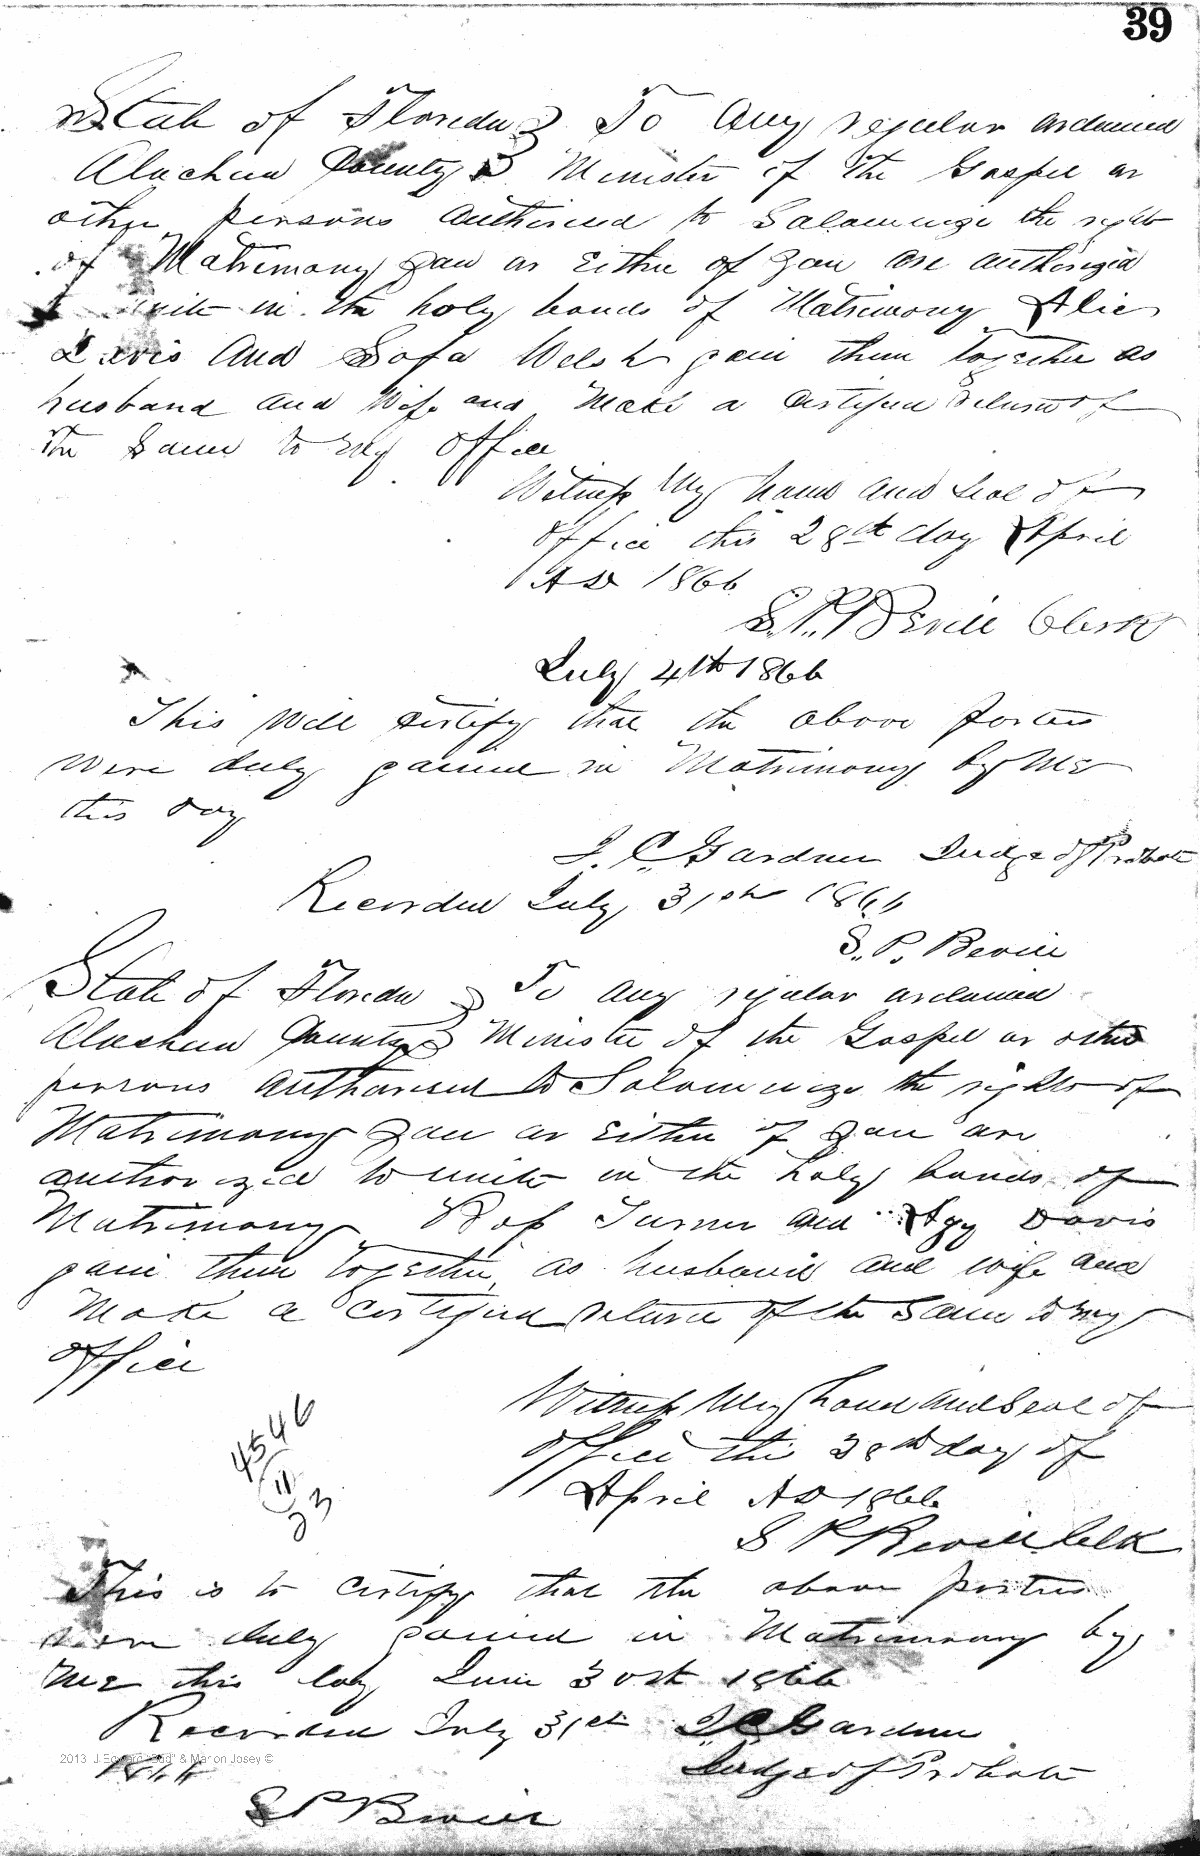 39
State of Florida } To Any regular ordained
Alachua County } Minister of the Gospel or
other persons authorised to Solomnize the rights
of Matrimony you or Either of you are authorized
unite in the holy bonds of Matrimony
and Welsh join them together as
husband and Wife and Make a certified return of
the Same to my office
Witness My hand and Seal of
office this 28th day April
AD 1866
S. P. Bevill Clerk
July 4th 1866
This Will certify that the above parties
Were duly joined in Matrimony by Me
this day
J. C. Gardner Judge of Probate
Recorded July 31st 1866
S. P. Bevill
State of Florida } To any regular ordained
Alachua County } Minister of the Gospel or other
persons authorised to Solomnize the rights of
Matrimony you or Either of you are
authorized to unite in the holy bonds of
Matrimony Turner and Agy Davis
join them together as husband and wife and
Make a certified return of the Same to my
office
Witness My hand and Seal of
office this 28th day of
April AD 1866
4546
11
23
S P Bevill Clk
This is to certify that the above parties
were duly joined in Matrimony by
Me this day June 30th 1866
Recorded July 31st J C Gardner
1866 Judge of Probate
2013 J. Edward "Bud" & Marion Josey ©
S P Bevill